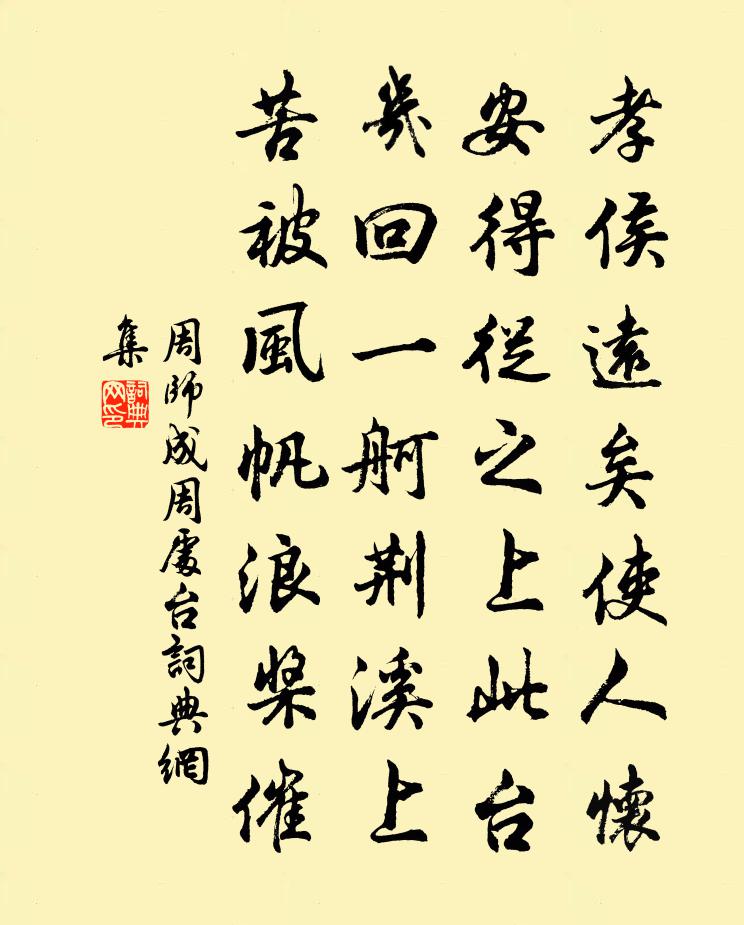 孝侯遠矣使人懷
安得從之上此台
幾回一舸荆溪上
苦被風帆浪槳催
周師成周處台詞典網
集
詞典
网印